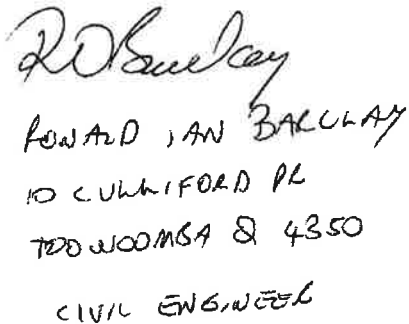 R D Barclay
RONALD IAN BARCLAY
10 CULLIFORD PL
TOOWOOMBA Q 4350
CIVIL ENGINEER